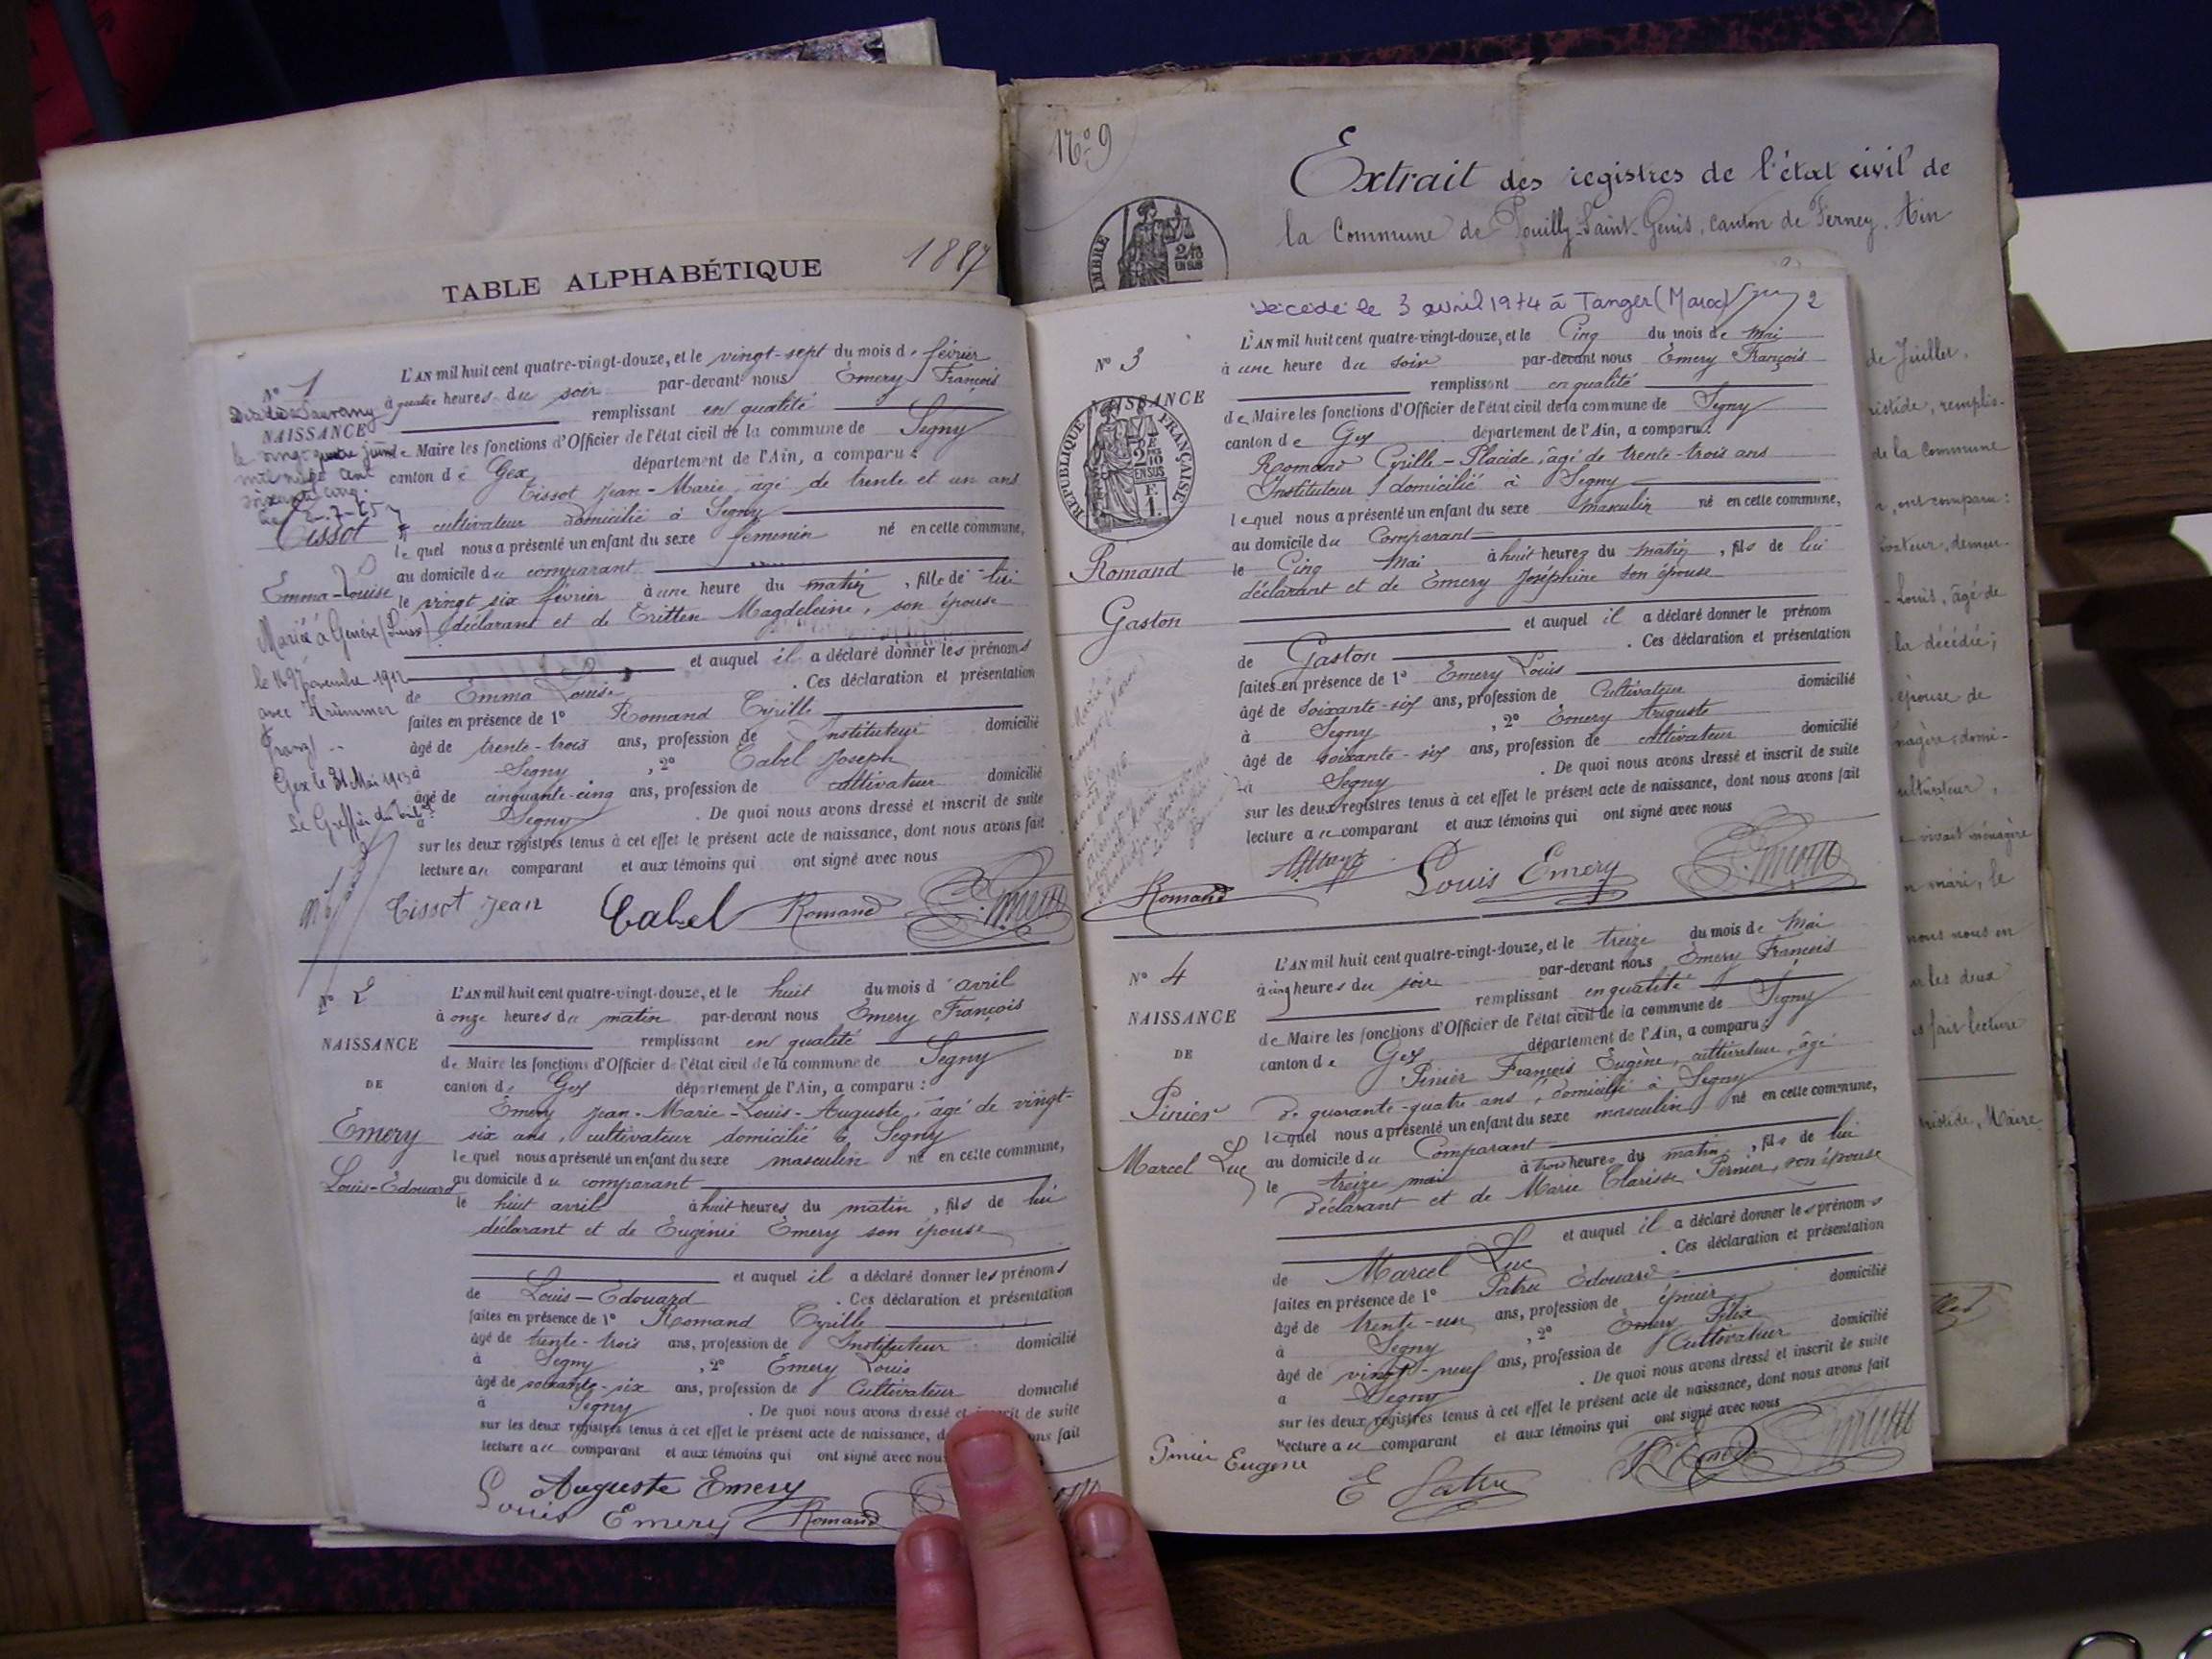 TABLE ALPHABÉTIQUE
1887
N° 1
NAISSANCE
Tissot
Emma-Louise
Mariée à Genève (Suisse)
le 16 Novembre 1912
avec Krümmer
Franz
Gex le 31 Mai 1913
Le Greffier
L'AN mil huit cent quatre-vingt-douze, et le vingt-sept du mois de février
à quatre heures du soir par-devant nous Émery François
remplissant en qualité
de Maire les fonctions d'Officier de l'état civil de la commune de Segny
canton de Gex département de l'Ain, a comparu :
Tissot Jean-Marie, âgé de trente et un ans
cultivateur domicilié à Segny
lequel nous a présenté un enfant du sexe féminin né en cette commune,
au domicile du comparant
le vingt six février à une heure du matin, fille de lui
déclarant et de Tritten Magdeleine, son épouse
et auquel il a déclaré donner les prénoms
de Emma Louise . Ces déclaration et présentation
faites en présence de 1° Romand Cyrille
âgé de trente-trois ans, profession de Instituteur domicilié
à Segny , 2° Cabel Joseph
âgé de cinquante-cinq ans, profession de cultivateur domicilié
à Segny . De quoi nous avons dressé et inscrit de suite
sur les deux registres tenus à cet effet le présent acte de naissance, dont nous avons fait
lecture au comparant et aux témoins qui ont signé avec nous
Tissot Jean Cabel Romand
N° 2
NAISSANCE
DE
Émery
Louis-Édouard
L'AN mil huit cent quatre-vingt-douze, et le huit du mois d'avril
à onze heures du matin par-devant nous Émery François
remplissant en qualité
de Maire les fonctions d'Officier de l'état civil de la commune de Segny
canton de Gex département de l'Ain, a comparu :
Émery Jean-Marie-Louis-Auguste, âgé de vingt-
six ans, cultivateur domicilié à Segny
lequel nous a présenté un enfant du sexe masculin né en cette commune,
au domicile du comparant
le huit avril à huit heures du matin, fils de lui
déclarant et de Eugénie Émery son épouse
et auquel il a déclaré donner les prénoms
de Louis-Édouard . Ces déclaration et présentation
faites en présence de 1° Romand Cyrille
âgé de trente-trois ans, profession de Instituteur domicilié
à Segny , 2° Émery Louis
âgé de soixante-six ans, profession de Cultivateur domicilié
à Segny . De quoi nous avons dressé et inscrit de suite
sur les deux registres tenus à cet effet le présent acte de naissance, d ons fait
lecture au comparant et aux témoins qui ont signé avec nou
Auguste Emery
Louis Emery Romand
N° 9
Extrait des registres de l'état civil de
la Commune de Pouilly-Saint-Genis, canton de Ferney, Ain
Décédé le 3 avril 1974 à Tanger (Maroc)
2
N° 3
NAISSANCE
RÉPUBLIQUE FRANÇAISE
2/10
EN SUS
Romand
Gaston
L'AN mil huit cent quatre-vingt-douze, et le Cinq du mois de Mai
à une heure du soir par-devant nous Émery François
remplissant en qualité
de Maire les fonctions d'Officier de l'état civil de la commune de Segny
canton de Gex département de l'Ain, a comparu :
Romand Cyrille-Placide, âgé de trente-trois ans
Instituteur, domicilié à Segny
lequel nous a présenté un enfant du sexe masculin né en cette commune,
au domicile du Comparant
le Cinq Mai à huit heures du matin, fils de lui
déclarant et de Émery Joséphine son épouse
et auquel il a déclaré donner le prénom
de Gaston . Ces déclaration et présentation
faites en présence de 1° Émery Louis
âgé de soixante-six ans, profession de Cultivateur domicilié
à Segny , 2° Émery Auguste
âgé de soixante-six ans, profession de cultivateur domicilié
à Segny . De quoi nous avons dressé et inscrit de suite
sur les deux registres tenus à cet effet le présent acte de naissance, dont nous avons fait
lecture au comparant et aux témoins qui ont signé avec nous
Romand Louis Emery
N° 4
NAISSANCE
DE
Pinier
Marcel Luc
L'AN mil huit cent quatre-vingt-douze, et le treize du mois de Mai
à cinq heures du soir par-devant nous Émery François
remplissant en qualité
de Maire les fonctions d'Officier de l'état civil de la commune de Segny
canton de Gex département de l'Ain, a comparu :
Pinier François Eugène, cultivateur, âgé
de quarante-quatre ans, domicilié à Segny
lequel nous a présenté un enfant du sexe masculin né en cette commune,
au domicile du Comparant
le treize mai à trois heures du matin, fils de lui
déclarant et de Marie Clarisse Pernier, son épouse
et auquel il a déclaré donner les prénoms
de Marcel Luc . Ces déclaration et présentation
faites en présence de 1° Patru Édouard
âgé de trente-un ans, profession de épicier domicilié
à Segny , 2° Émery Félix
âgé de vingt-neuf ans, profession de Cultivateur domicilié
à Segny . De quoi nous avons dressé et inscrit de suite
sur les deux registres tenus à cet effet le présent acte de naissance, dont nous avons fait
lecture au comparant et aux témoins qui ont signé avec nous
Pinier Eugene E Patru
de Juillet,
ristide, remplis-
de la Commune
, ont comparu :
Louis, âgé de
la décédée;
épouse de
vivait ménagère
nous nous en
fait lecture
ristide, Maire